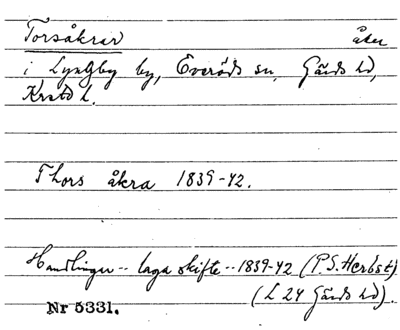 Torsåkrar åker
i Lyngby by, Everöds sn, Gärds hd,
Krstd l.
Thors åkra 1839-42.
Handlingar -- laga skifte -- 1839-42 (P.S. Herbst)
(L 24 Gärds hd).
Nr 5331.